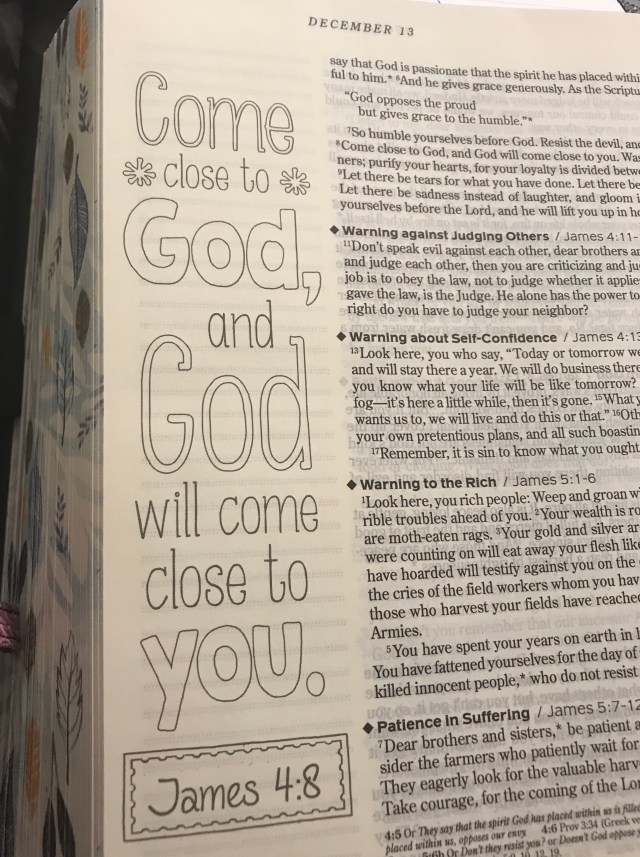 DECEMBER 13
Come
close to
God,
and
God
will come
close to
YOU.
James 4:8
say that God is passionate that the spirit he has placed withi
ful to him.* ⁶And he gives grace generously. As the Scriptu
“God opposes the proud
but gives grace to the humble.”*
⁷So humble yourselves before God. Resist the devil, and
⁸Come close to God, and God will come close to you. Was
ners; purify your hearts, for your loyalty is divided betwe
⁹Let there be tears for what you have done. Let there be
Let there be sadness instead of laughter, and gloom i
yourselves before the Lord, and he will lift you up in ho
◆ Warning against Judging Others / James 4:11-
¹¹Don’t speak evil against each other, dear brothers an
and judge each other, then you are criticizing and ju
job is to obey the law, not to judge whether it applie
gave the law, is the Judge. He alone has the power to
right do you have to judge your neighbor?
◆ Warning about Self-Confidence / James 4:13
¹³Look here, you who say, “Today or tomorrow we
and will stay there a year. We will do business there
you know what your life will be like tomorrow?
fog—it’s here a little while, then it’s gone. ¹⁵What y
wants us to, we will live and do this or that.” ¹⁶Oth
your own pretentious plans, and all such boastin
¹⁷Remember, it is sin to know what you ought
◆ Warning to the Rich / James 5:1-6
¹Look here, you rich people: Weep and groan wi
rible troubles ahead of you. ²Your wealth is ro
are moth-eaten rags. ³Your gold and silver ar
were counting on will eat away your flesh like
have hoarded will testify against you on the
the cries of the field workers whom you hav
those who harvest your fields have reached
Armies.
⁵You have spent your years on earth in l
You have fattened yourselves for the day of
killed innocent people,* who do not resist
◆ Patience in Suffering / James 5:7-12
⁷Dear brothers and sisters,* be patient a
sider the farmers who patiently wait for
They eagerly look for the valuable harv
Take courage, for the coming of the Lor
4:5 Or They say that the spirit God has placed within us is filled
placed within us, opposes our envy 4:6 Prov 3:34 (Greek ve
Or Don’t they resist you? or Doesn’t God oppose y
10, 12, 19